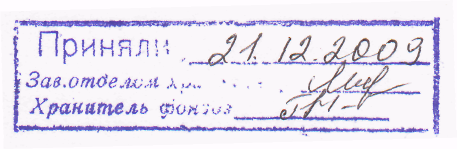 Приняли 21.12.2009
Зав.отделом
Хранитель фондов